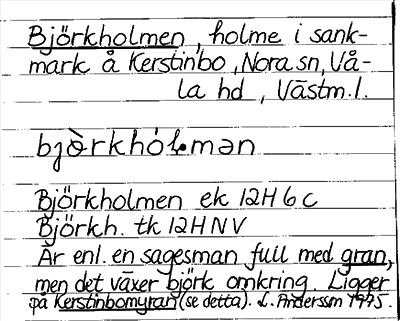 Björkholmen, holme i sank-
mark å Kerstinbo, Nora sn, Vå-
la hd, Västm.l.
bjö̀rkhól.mən
Björkholmen ek 12H 6c
Björkh. tk 12H NV
Är enl. en sagesman full med gran,
men det växer björk omkring. Ligger
på Kerstinbomyran (se detta). L. Andersson 1975.